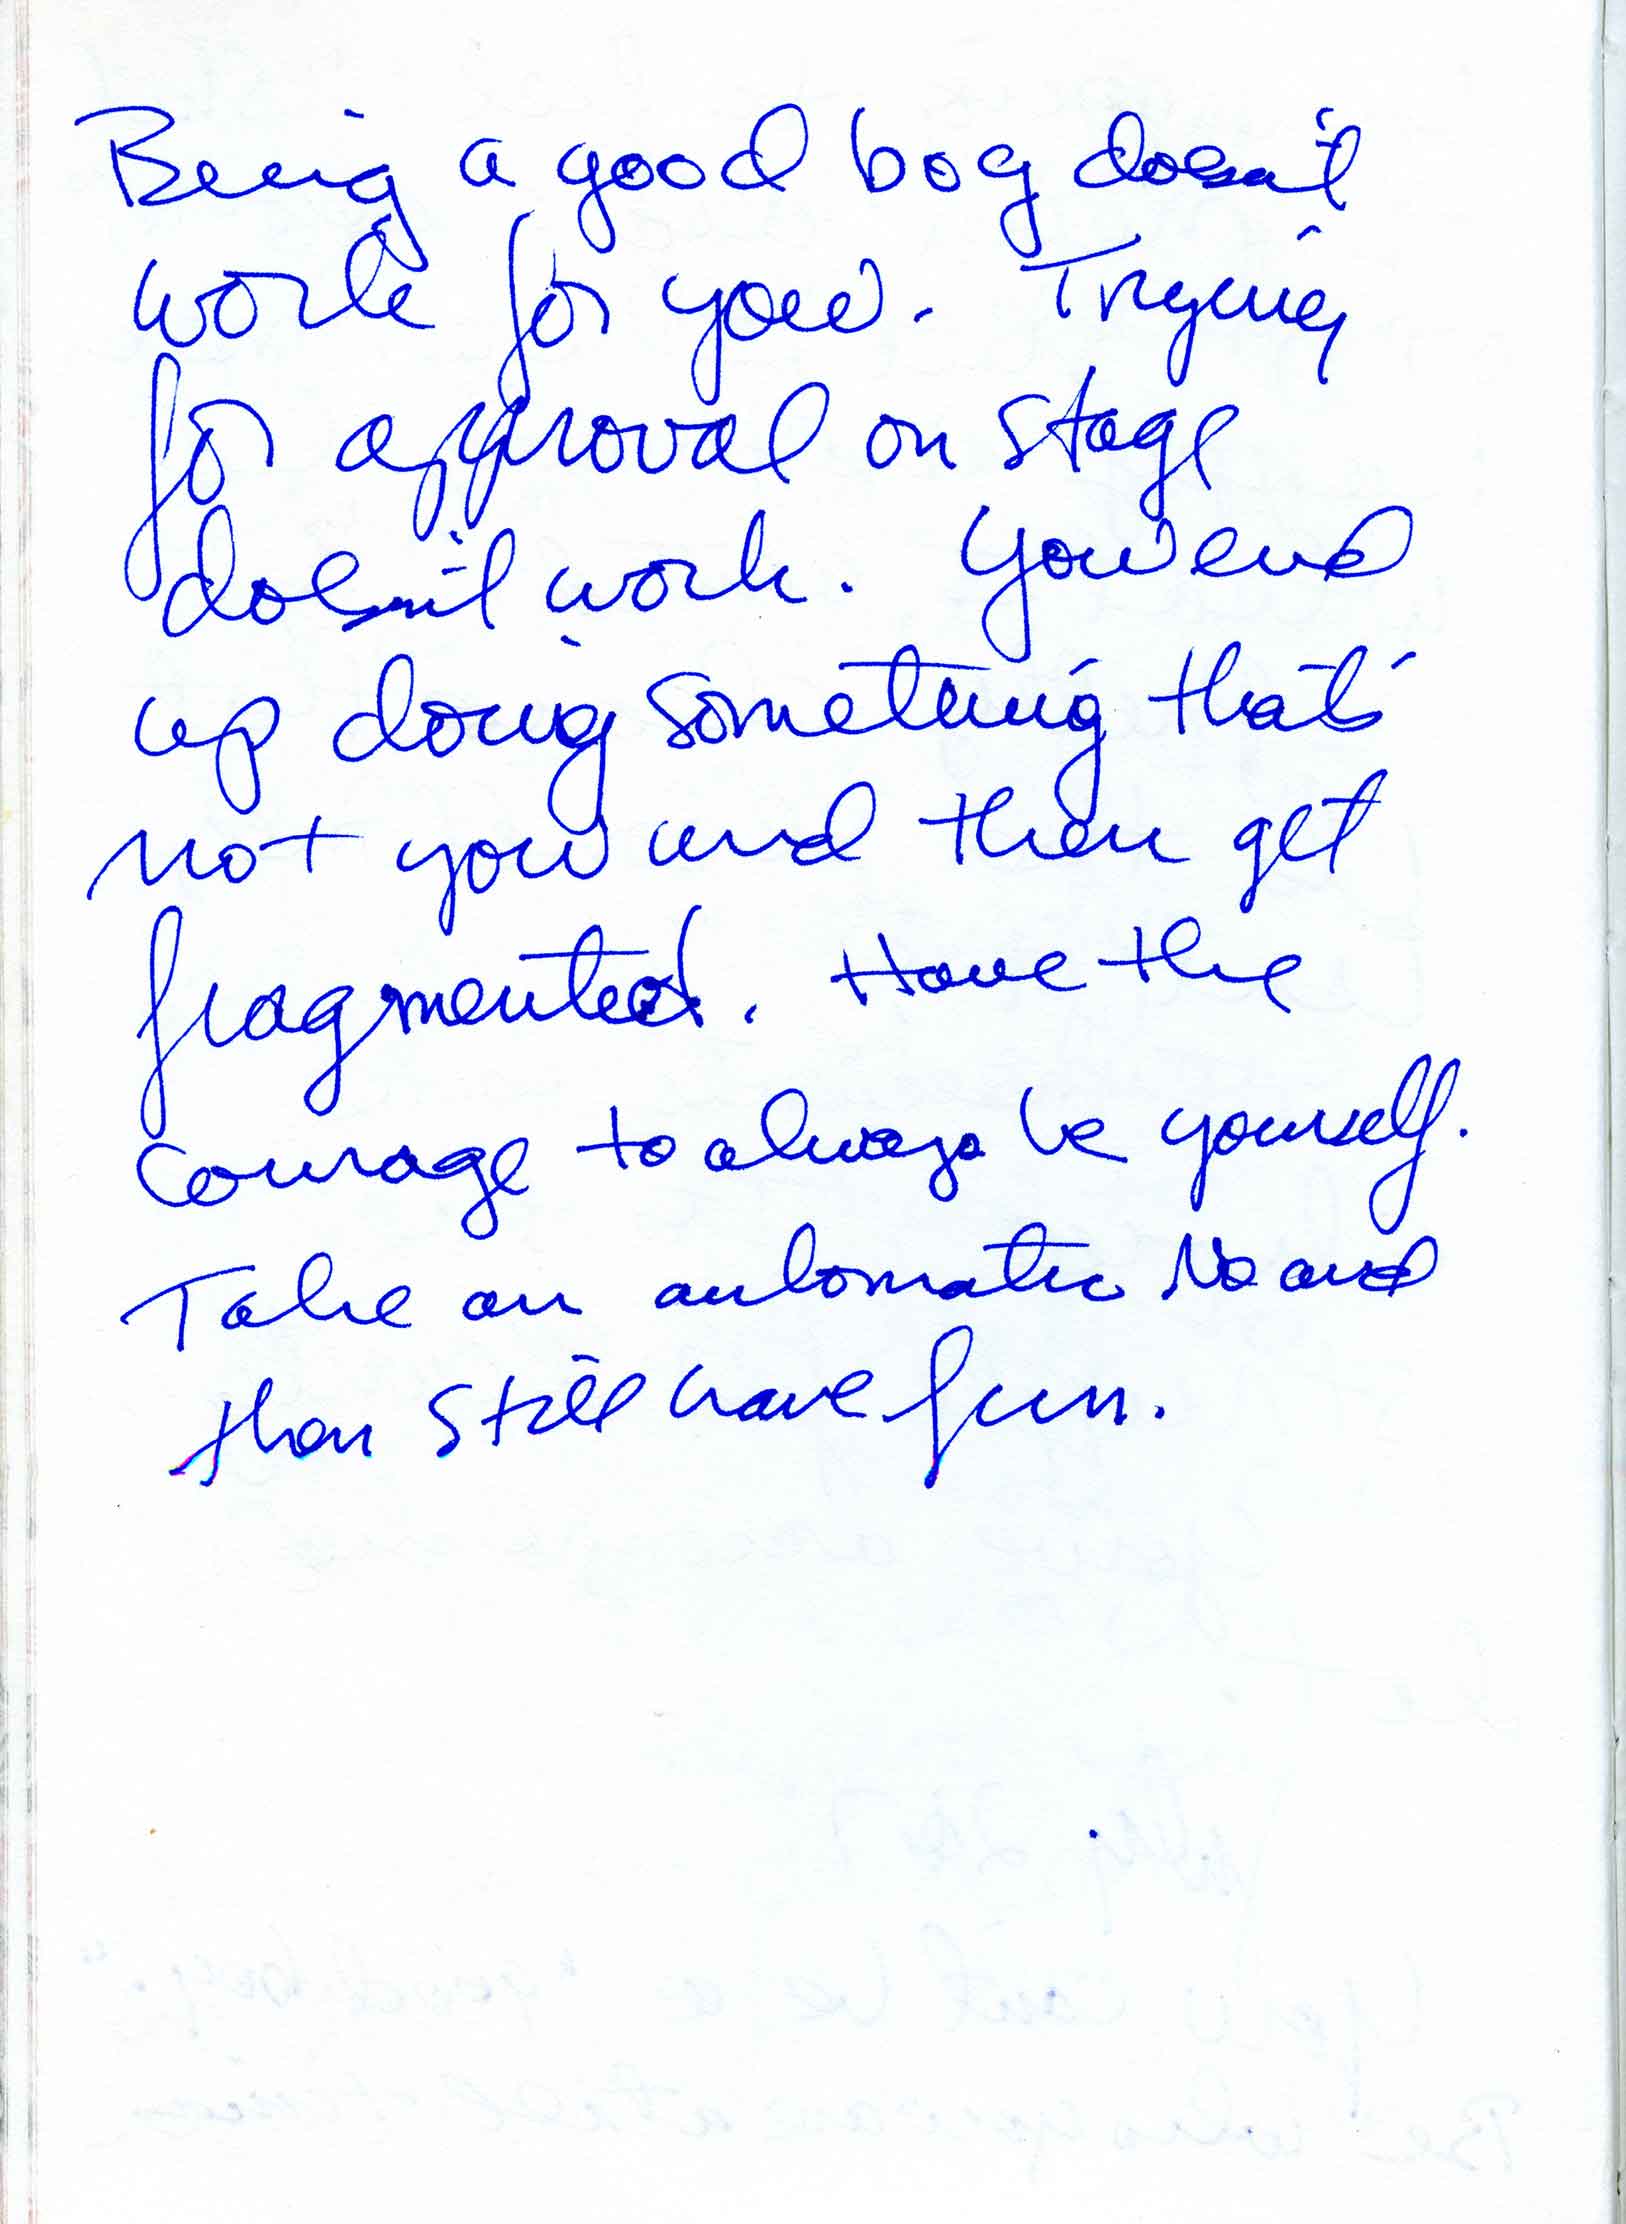 Being a good boy doesn't
work for you. Trying
for approval on stage
doesn't work. You end
up doing something that's
not you and then get
fragmented. Have the
courage to always be yourself.
Take an automatic No and
then still have fun.